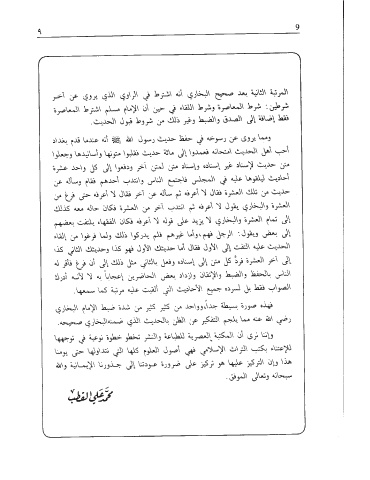 9
٩
المرتبة الثانية بعد صحيح البخاري أنه اشترط في الراوي الذي يروي عن آخر
شرطين: شرط المعاصرة وشرط اللقاء في حين أن الإمام مسلم اشترط المعاصرة
فقط إضافة إلى الصدق والضبط وغير ذلك من شروط قبول الحديث.
ومما يروى عن رسوخه في حفظ حديث رسول الله ﷺ أنه عندما قدم بغداد
أحب أهل الحديث امتحانه فعمدوا إلى مائة حديث فقلبوا متونها وأسانيدها وجعلوا
متن حديث لإسناد غير إسناده وإسناد متن لمتن آخر ودفعوا إلى كل واحد عشرة
أحاديث ليلقوها عليه في المجلس فاجتمع الناس وانتدب أحدهم فقام وسأله عن
حديث من تلك العشرة فقال لا أعرفه ثم سأله عن آخر فقال لا أعرفه حتى فرغ من
العشرة والبخاري يقول لا أعرفه ثم انتدب آخر من العشرة فكان حاله معه كذلك
إلى تمام العشرة والبخاري لا يزيد على قوله لا أعرفه فكان الفقهاء يلتفت بعضهم
إلى بعض ويقول: الرجل فهم، وأما غيرهم فلم يدركوا ذلك ولما فرغوا من إلقاء
الحديث عليه التفت إلى الأول فقال أما حديثك الأول فهو كذا وحديثك الثاني كذا
إلى آخر العشرة فردّ كل متن إلى إسناده وفعل بالثاني مثل ذلك إلى أن فرغ فأقر له
الناس بالحفظ والضبط والإتقان وازداد بعض الحاضرين إعجاباً به لا لأنه أدرك
الصواب فقط بل لسرده جميع الأحاديث التي ألقيت عليه مرتبة كما سمعها.
فهذه صورة بسيطة جداً، وواحد من كثير كثير من شدة ضبط الإمام البخاري
رضي الله عنه مما يلجم التفكير عن الظن بالحديث الذي ضمنه البخاري صحيحه.
وإننا نرى أن المكتبة العصرية للطباعة والنشر تخطو خطوة نوعية في توجهها
للإعتناء بكتب التراث الإسلامي فهي أصول العلوم كلها التي نتداولها حتى يومنا
هذا وإن التركيز عليها هو تركيز على ضرورة عودتنا إلى جذورنا الإيمانية والله
سبحانه وتعالى الموفق.
محمد علي القطب